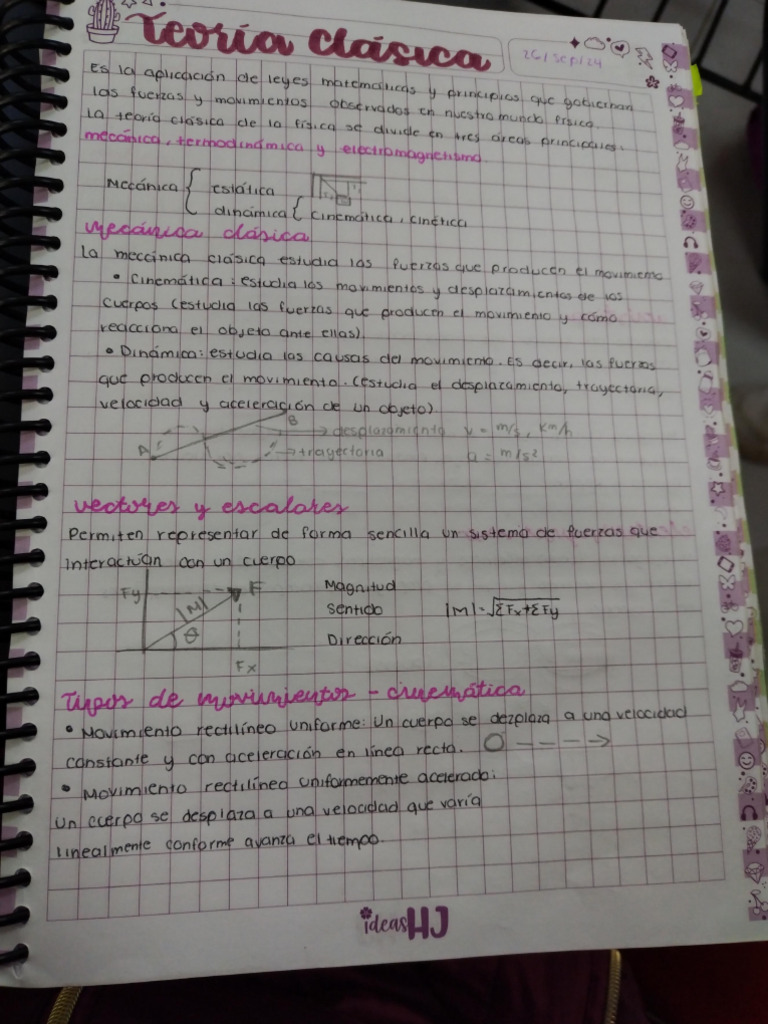 Teoría clásica
26/sep/24
Es la aplicación de leyes matemáticas y principios que gobiernan
las fuerzas y movimientos observados en nuestro mundo físico.
La teoría clásica de la física se divide en tres áreas principales:
mecánica, termodinámica y electromagnetismo.
Mecánica { estática
dinámica { cinemática, cinética
Mecánica clásica
La mecánica clásica estudia las fuerzas que producen el movimiento
• Cinemática: estudia los movimientos y desplazamientos de los
cuerpos (estudia las fuerzas que producen el movimiento y cómo
reacciona el objeto ante ellas).
• Dinámica: estudia las causas del movimiento. Es decir, las fuerzas
que producen el movimiento. (estudia el desplazamiento, trayectoria,
velocidad y aceleración de un objeto).
A B → desplazamiento v = m/s, km/h
→ trayectoria a = m/s²
Vectores y escalares
Permiten representar de forma sencilla un sistema de fuerzas que
interactúan con un cuerpo
Fy |M| F Magnitud
Sentido |M| = √ΣFx+ΣFy
θ Dirección
Fx
Tipos de movimientos - cinemática
• Movimiento rectilíneo uniforme: Un cuerpo se dezplaza a una velocidad
constante y con aceleración en línea recta.
• Movimiento rectilíneo uniformemente acelerado:
un cuerpo se desplaza a una velocidad que varía
linealmente conforme avanza el tiempo.
ideas HJ